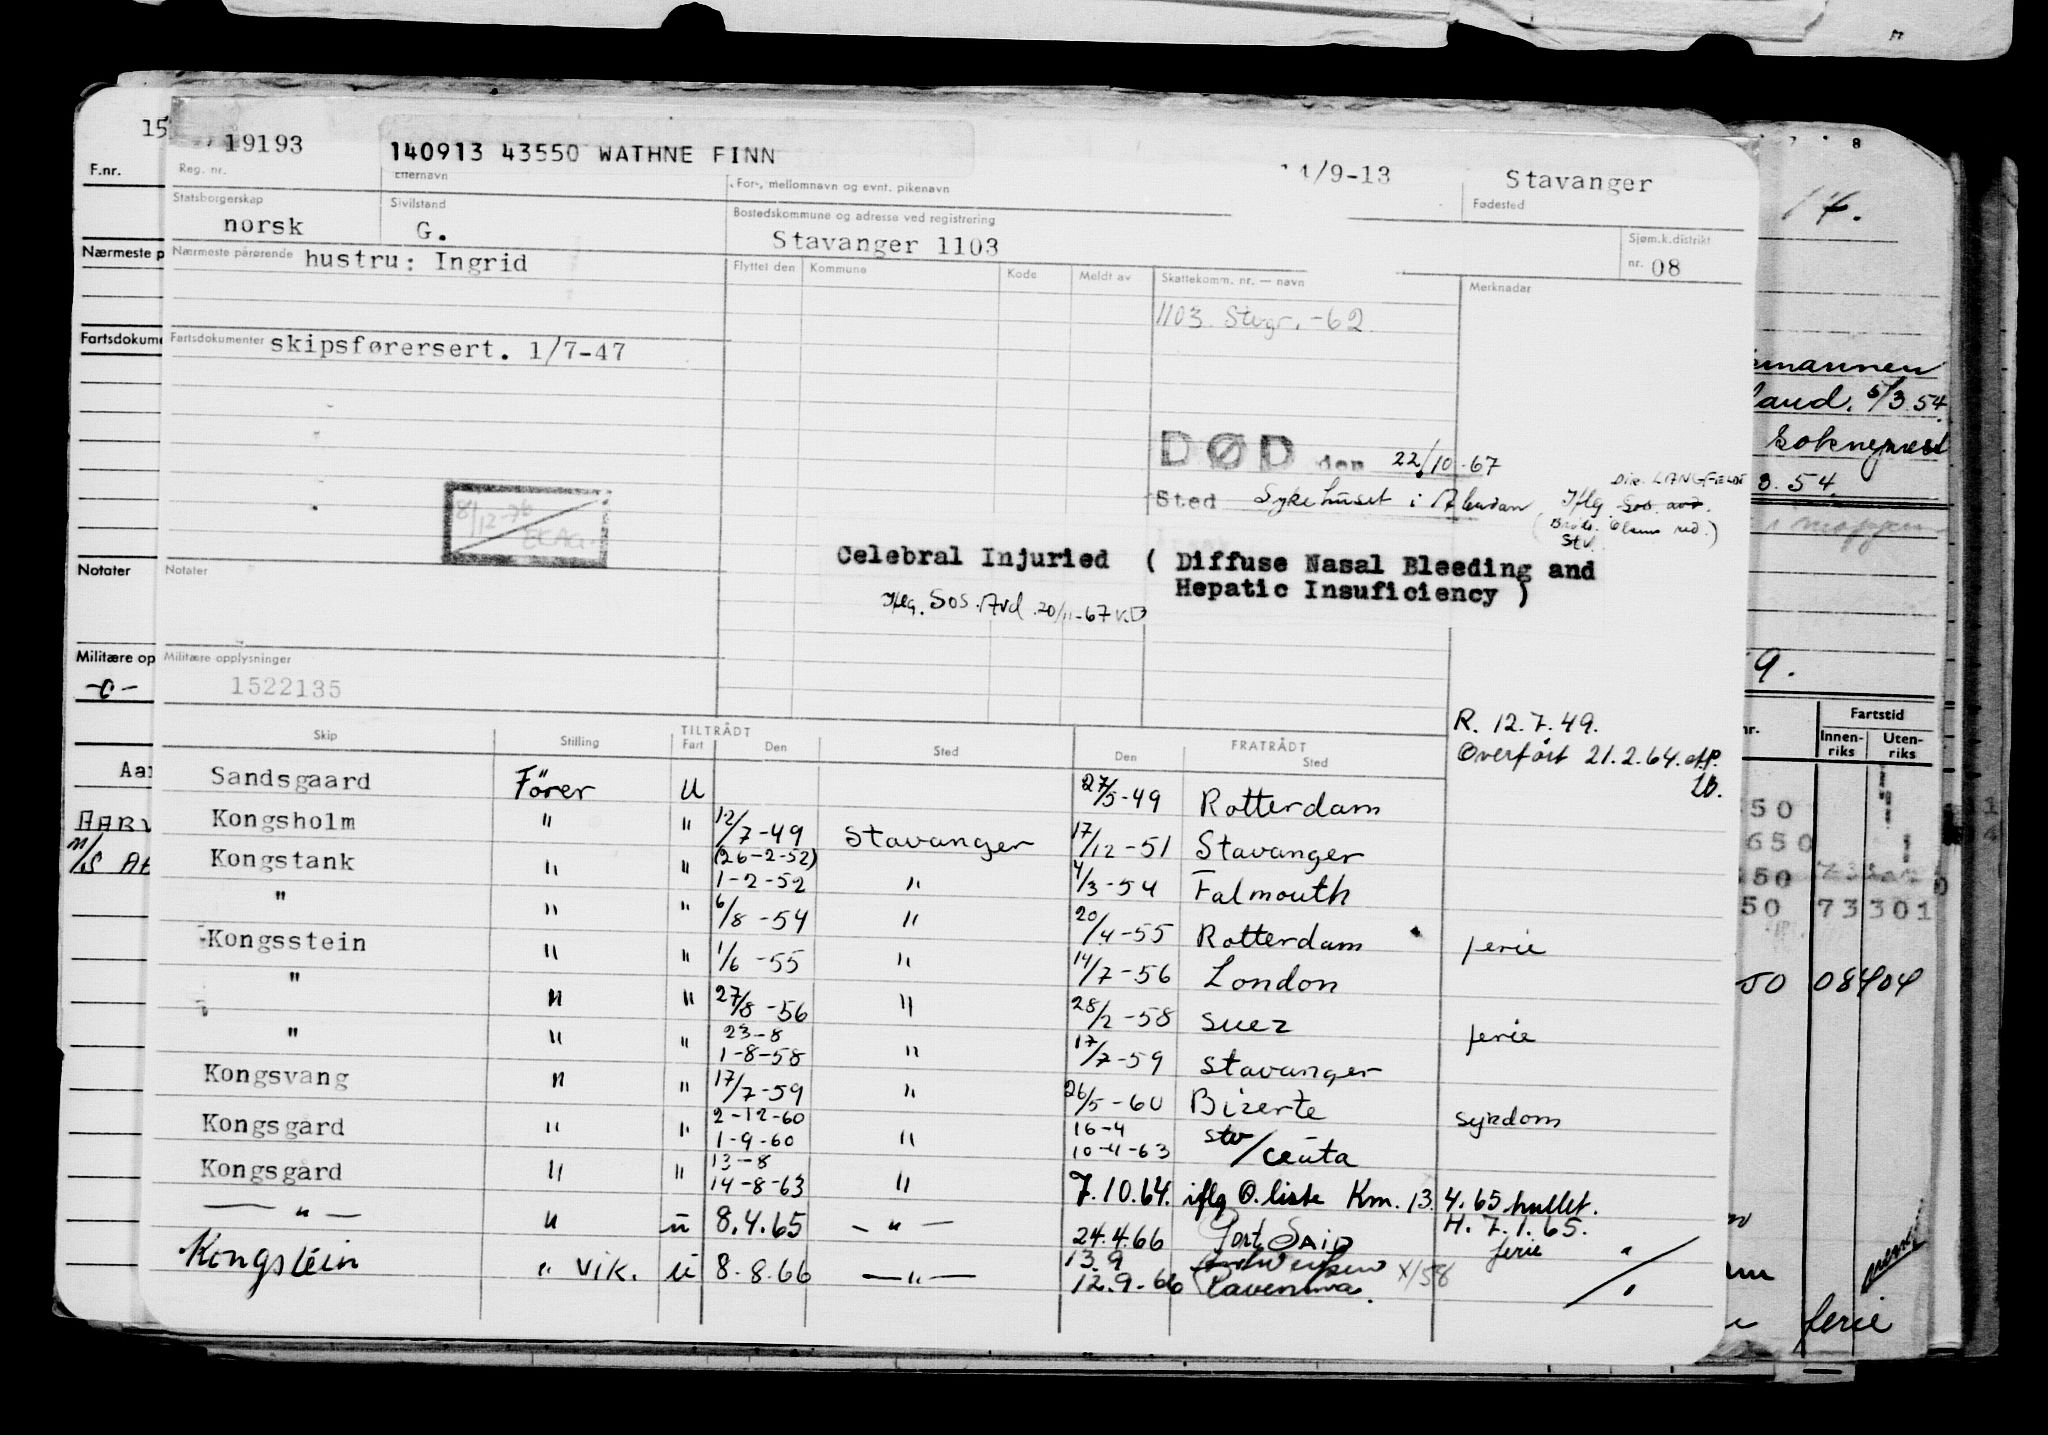 19193
140913 43550 WATHNE FINN
1/9-13
Stavanger
F.nr.
Reg. nr.
Etternavn
For-, mellomnavn og evnt. pikenavn
Fødested
Statsborgerskap
norsk
Sivilstand
G.
Bostedskommune og adresse ved registrering
Stavanger 1103
Sjøm.k.distrikt
nr. 08
Nærmeste p
Nærmeste pårørende hustru: Ingrid
Flyttet den
Kommune
Kode
Meldt av
Skattekomm. nr. — navn
Merknader
1103. Stvgr. -62
Fartsdokume
Fartsdokumenter skipsførersert. 1/7-47
DØD den 22/10-67
Sted Sykehuset i Abadan
Iflg. Sos. avd.
Dir. LANGFELDT
Stv.
Celebral Injuried ( Diffuse Nasal Bleeding and
Hepatic Insuficiency )
Iflg. Sos. Avd. 20/11-67 V.D
Notater
Notater
Militære op
Militære opplysninger
1522135
R. 12.7.49.
Overført 21.2.64.
Skip
Stilling
TILTRÅDT
Fart
Den
Sted
FRATRÅDT
Den
Sted
Sandsgaard Förer U 27/5-49 Rotterdam
Kongsholm " " 12/7-49 Stavanger 17/12-51 Stavanger
Kongstank " " (26-2-52) 1-2-52 " 4/3-54 Falmouth
" " " 6/8-54 " 20/4-55 Rotterdam ferie
Kongsstein " " 1/6-55 " 14/7-56 London
" " " 27/8-56 " 28/2-58 Suez ferie
" " " 23-8 1-8-58 " 17/7-59 Stavanger
Kongsvang " " 17/7-59 " 26/5-60 Bizerte sykdom
Kongsgård " " 2-12-60 1-9-60 " 16-4 10-4-63 Stv/Ceuta
Kongsgård " " 13-8 14-8-63 " 7.10.64. iflg O. liste Km. 13.4.65 hullet.
H. 7.1.65.
— " — " u 8.4.65 — " — 24.4.66 Port SAID ferie "
Kongstein " Vik. u 8.8.66 — " — 13.9 12.9-66 Antwerpen Ravenna. X/58 "
14.
5/3.54.
3.54.
9.
Fartstid
Innen-
riks
Uten-
riks
50
650
50
50 73 301
50 08404
ferie